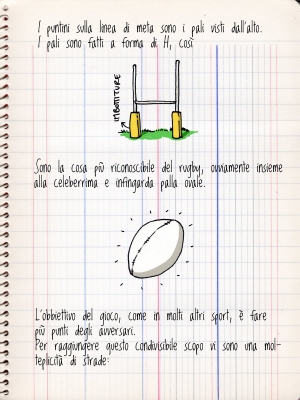 I puntini sulla linea di meta sono i pali visti dall'alto.
I pali sono fatti a forma di H, così
IMBOTTITURE
Sono la cosa più riconoscibile del rugby, ovviamente insieme
alla celeberrima e infingarda palla ovale.
L'obbiettivo del gioco, come in molti altri sport, è fare
più punti degli avversari.
Per raggiungere questo condivisibile scopo vi sono una mol-
teplicità di strade: